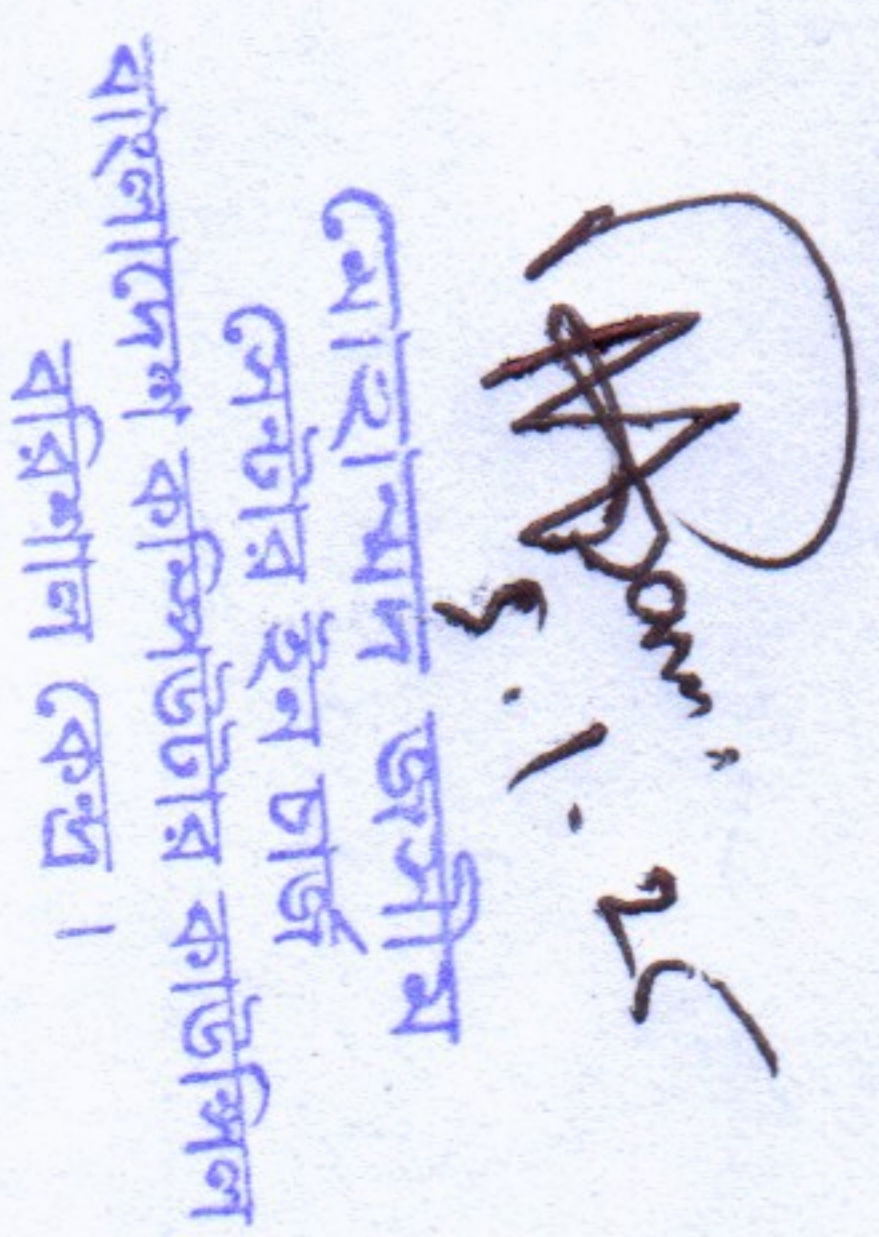 5.1.25
মোহাম্মদ জসীম
সেন্টার ইন চার্জ
বাংলাদেশ কম্পিউটার কাউন্সিল
বরিশাল কেন্দ্র।